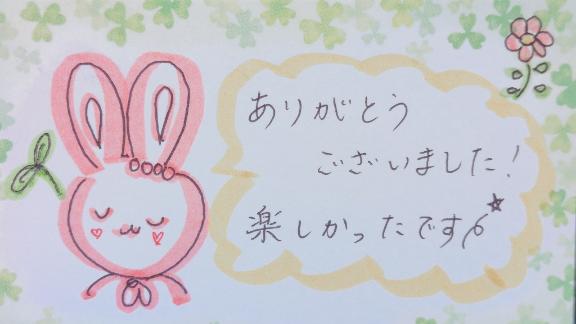 ありがとう
ございました!
楽しかったです